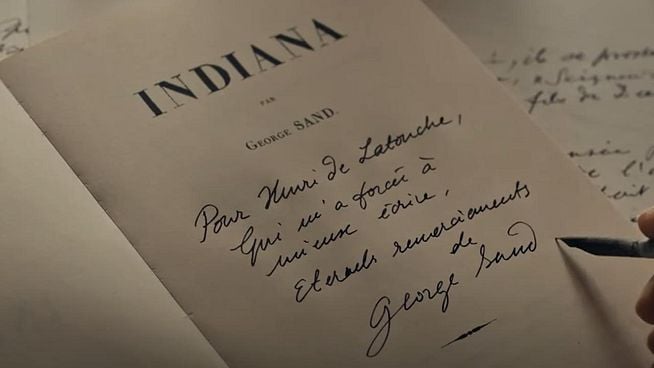 INDIANA
PAR
GEORGE SAND.
Pour Henri de Latouche,
Qui m'a forcée à
mieux écrire,
Eternels remerciements
de
George Sand
, il se